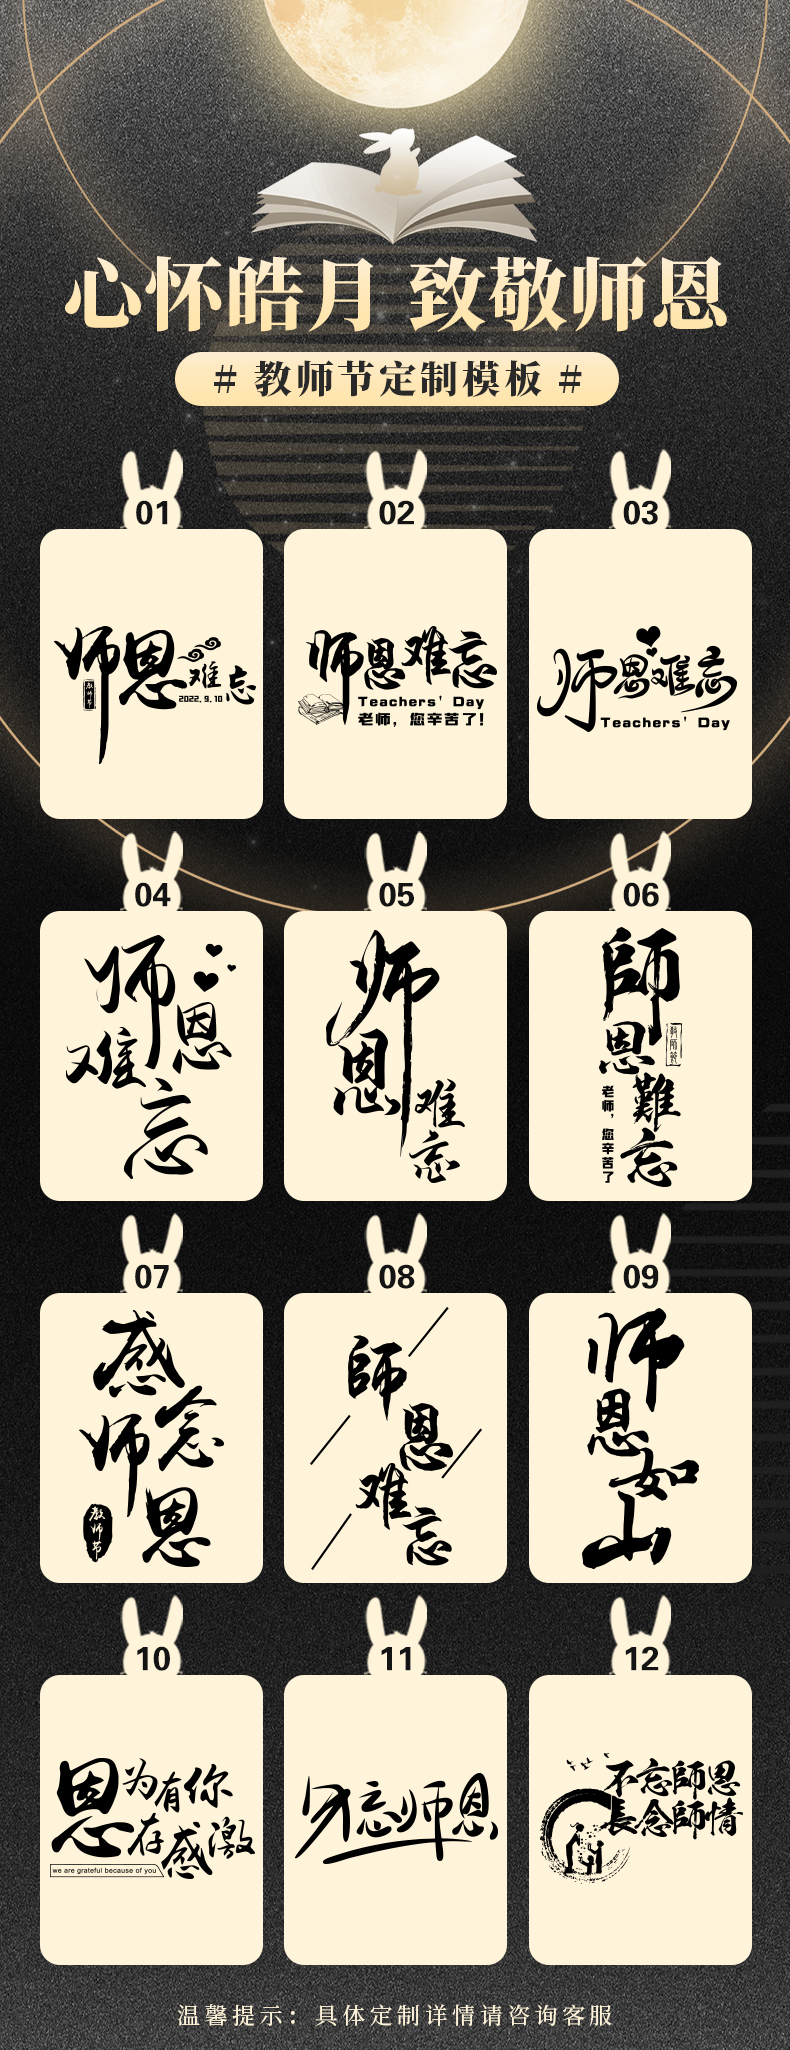 心怀皓月 致敬师恩
# 教师节定制模板 #
01
师恩难忘
教师节
2022.9.10
02
师恩难忘
Teachers' Day
老师，您辛苦了！
03
师恩难忘
Teachers' Day
04
师恩难忘
05
师恩难忘
06
師恩難忘
教师节
老师，您辛苦了
07
感念师恩
教师节
08
師恩难忘
09
师恩如山
10
恩为有你
存感激
we are grateful because of you
11
勿忘师恩
12
不忘師恩
長念師情
温馨提示：具体定制详情请咨询客服